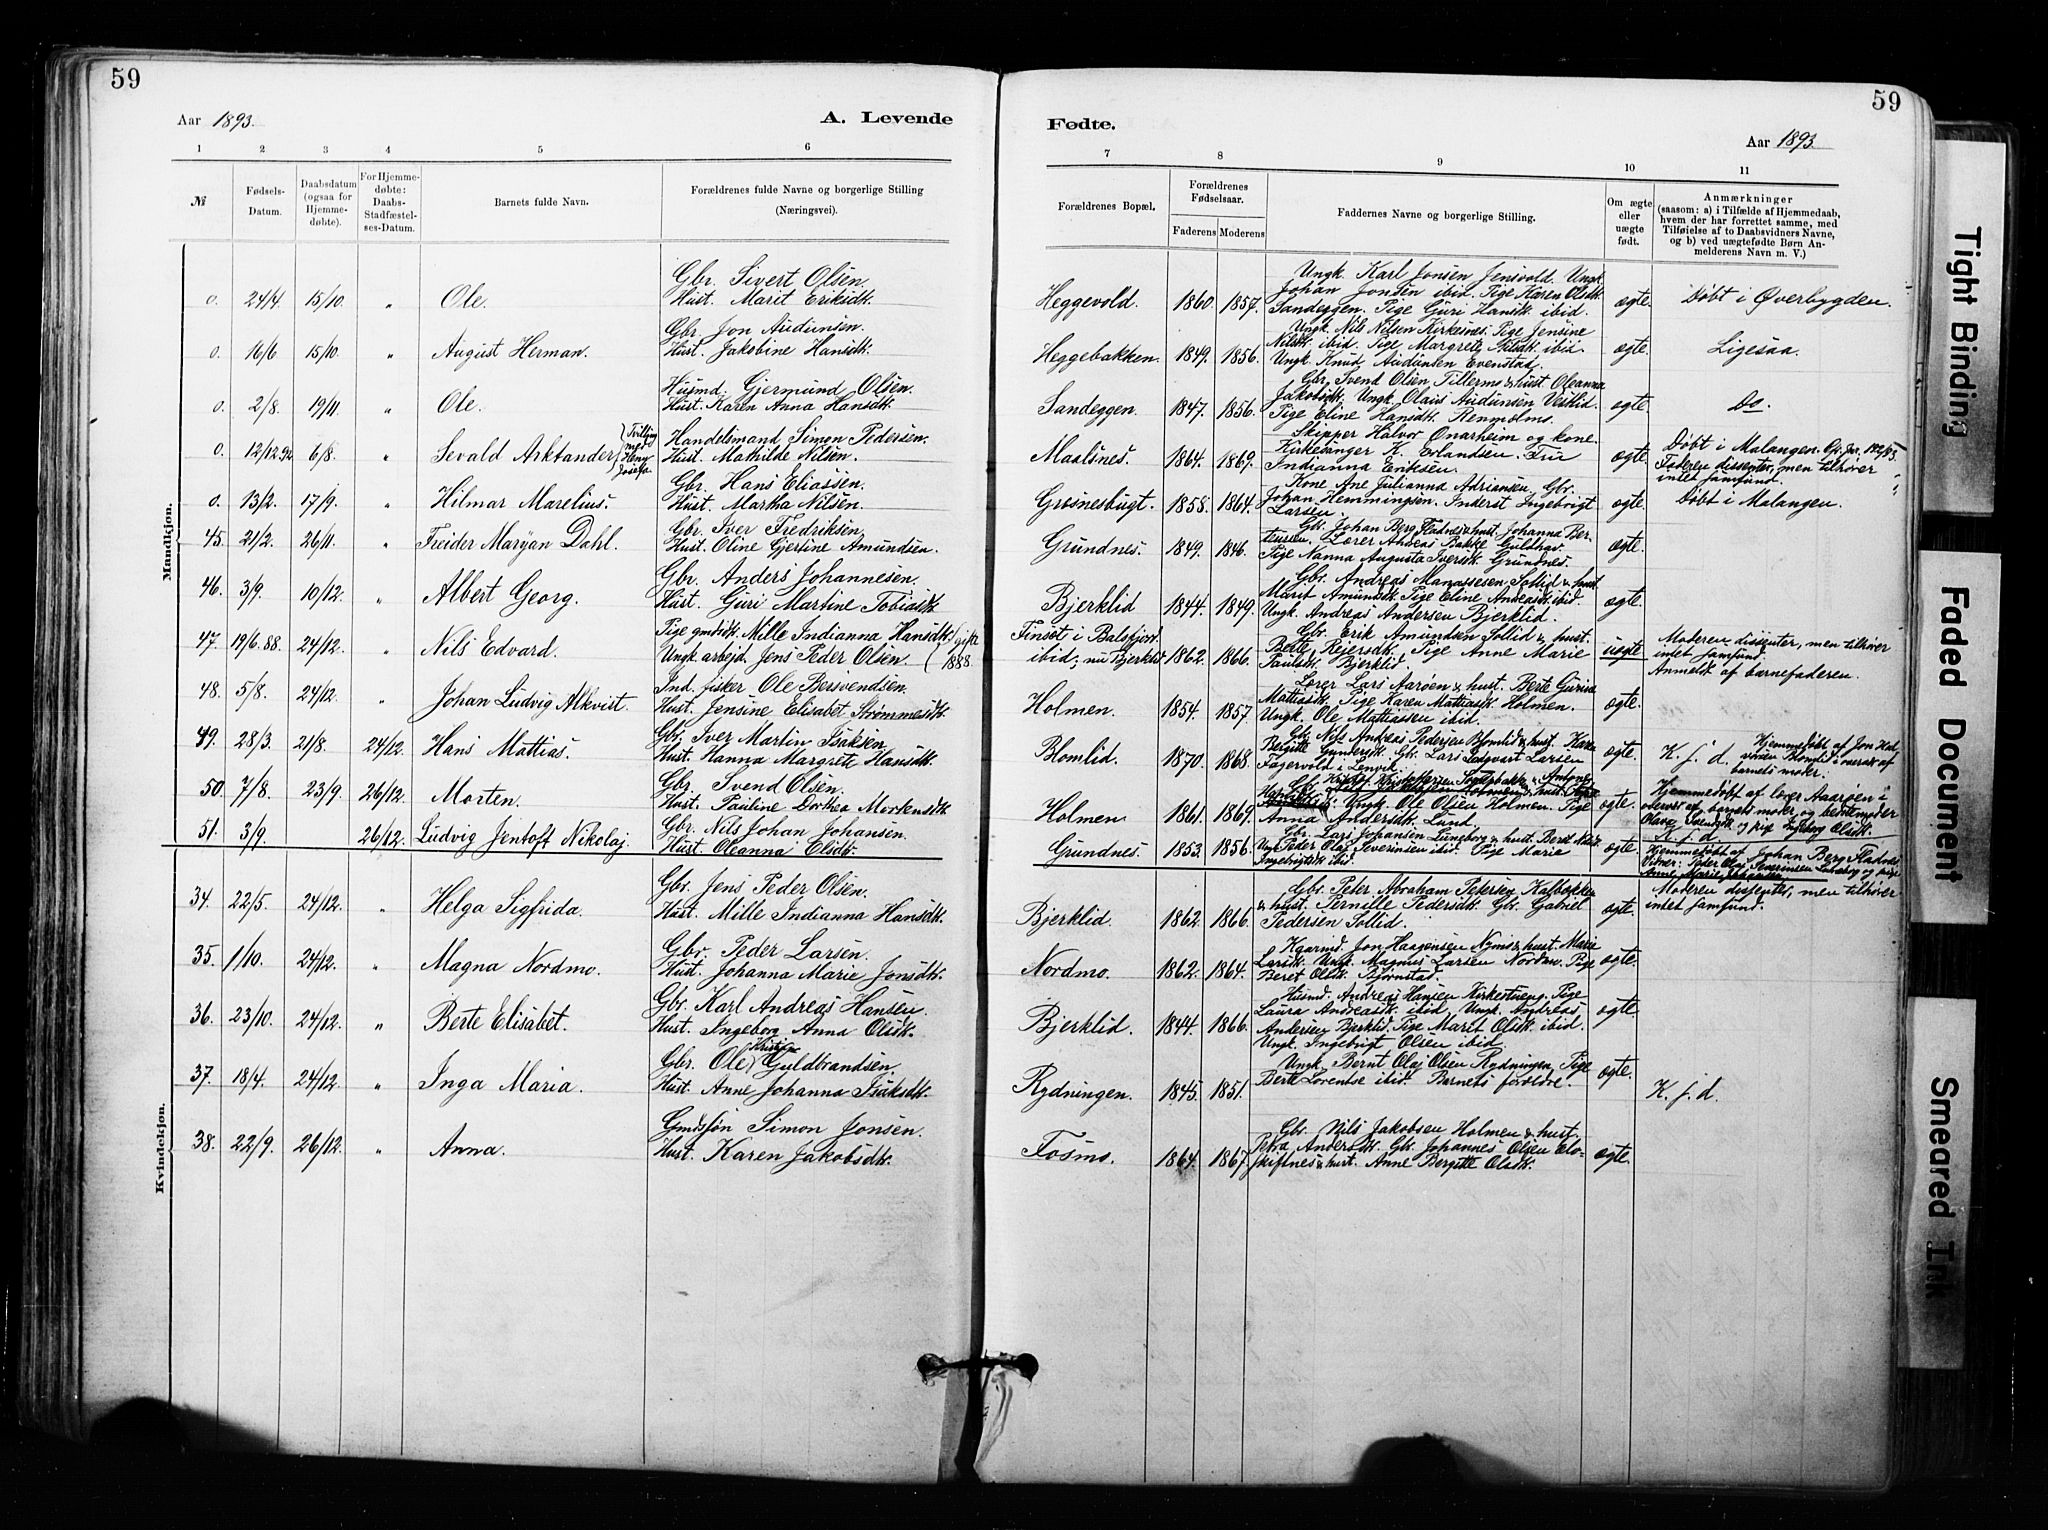 59
59
Aar 1893.
A. Levende
Fødte.
Aar 1893.
1 2 3 4 5 6 7 8 9 10 11
№
Fødsels-Datum.
Daabsdatum (ogsaa for Hjemmedøbte).
For Hjemmedøbte: Daabs-Stadfæstelses-Datum.
Barnets fulde Navn.
Forældrenes fulde Navne og borgerlige Stilling (Næringsvei).
Forældrenes Bopæl.
Forældrenes Fødselsaar.
Faderens Moderens
Faddernes Navne og borgerlige Stilling.
Om ægte eller uægte født.
Anmærkninger
(saasom: a) i Tilfælde af Hjemmedaab,
hvem der har forrettet samme, med
Tilføielse af to Daabsvidners Navne,
og b) ved uægtefødte Børn Anmelderens Navn m. V.)
Mandkjøn.
0. 24/4. 15/10. " Ole. Gbr. Sivert Olsen. Hust. Marit Eriksdt. Heggevold. 1860. 1857. Ungk. Karl Jonsen Jensvold. Ungk. Johan Jonsen ibid. Pige Karen Olsdt. Sandeggen. Pige Guri Hansdt. ibid. ægte. Døbt i Øverbygden.
0. 16/6 15/10. " August Herman. Gbr. Jon Audunsen. Hust. Jakobine Hansdt. Heggebakken. 1849. 1856. Ungk. Nils Nilsen Kirkesnes. Pige Jensine Nilsdt. ibid. Pige Margrete ibid. Ungk. Knud Audunsen Evenstad. ægte. Ligesaa.
0. 2/8. 19/11. " Ole. Husmd. Gjermund Olsen. Hust. Karen Anna Hansdt. Sandeggen. 1847. 1856. Gbr. Svend Olsen, Tillermo & hust. Oleanna Jakobsdt. Ungk. Olaus Audunsen Vestlid. Pige Eline Hansdt. ægte. Do.
0. 12/12.92 6/8. " Sevald Arktander {Tvilling med Henr. Josefa. Handelsmand Simen Pedersen. Hust. Mathilde Nilsen. Maalsnes. 1864. 1869. Skipper Halvor Onarheim og kone. Kirkesanger K. Erlandsen. Fru Indianna Eriksen. ægte. Døbt i Malangen. Faderen dissenter, men tilhører intet samfund.
0. 13/2. 17/9. " Hilmar Marelius. Gbr. Hans Eliassen. Hust. Martha Nilsen. Grøsnesbugt. 1858. 1864. Kone Ane Julianna Adriansen. Gbr. Johan Hemmingsen. Inderst Ingebrigt Larsen. ægte. Døbt i Malangen.
45. 21/2. 26/11. " Freider Maryan Dahl. Gbr. Iver Fredriksen. Hust. Oline Gjertine Amundsen. Grundnes. 1849. 1846. Gbr. Johan Berg, Fladnes & hust. Johanna Berteusen. Lærer Andreas Bakke Guldhav. Pige Nanna Augusta Iversdt. Grundnes. ægte.
46. 3/9. 10/12. " Albert Georg. Gbr. Anders Johannesen. Hust. Guri Martine Tobiasdt. Bjerklid 1844. 1849. Gbr. Andreas Manassesen Sollid & hust. Marit Amundsdt. Pige Eline Andreasdt. ibid. Ungk. Andreas Andersen Bjerklid. ægte.
47. 19/6.88. 24/12. " Nils Edvard. Pige gmdsdt. Mille Indianna Hansdt. Ungk. arbejd. Jens Peder Olsen. {gift 1888 Finsæt i Balsfjord. ibid., nu Bjerklid 1862. 1866. Gbr. Erik Amundsen Sollid & hust. Berte Reiersdt. Pige Anne Marie Paulsdt. Bjerklid. uægte Moderen dissenter, men tilhører intet samfund. Anmeldt af barnefaderen.
48. 5/8. 24/12. " Johan Ludvig Alkvist. Ind. fisker Ole Bersvendsen. Hust. Jensine Elisabet Strømmesdt. Holmen. 1854. 1857. Lærer Lars Aarøen & hust. Berte Gurina Mattiasdt. Pige Karen Mattiasdt. Holmen. Ungk. Ole Mattiassen ibid. ægte.
49. 28/3. 21/8. 24/12. Hans Mattias. Gbr. Iver Martin Isaksen. Hust. Hanna Margrete Hansdt. Blomlid. 1870. 1868. Gbr. Nils Andreas Pedersen Blomlid & hust. Karen Bergitte Gundersdt. Gbr. Lars Sedgvart Larsen Fagervold i Lenvik. ægte. K. f. d. Hjemmedøbt af Jon Blomlid i overvær af barnets moder.
50. 7/8. 23/9. 26/12. Morten. Gbr. Svend Olsen. Hust. Pauline Dorthea Mortensdt. Holmen. 1861. 1867. Ungk. Ole Olsen Holmen. Pige Anna Andersdt. Lund ægte. Hjemmedøbt af lærer Aarøen i overvær af barnets moder og bedstemoder Olava Svendsdt. og pige Ingeborg Olsdt. K. f. d.
51. 3/9. 26/12. Ludvig Jentoft Nikolaj. Gbr. Nils Johan Johansen. Hust. Oleanna Elsdt. Grundnes. 1853. 1856. Gbr. Lars Johansen Luneborg & hust. Beret Nilsdt. Ungk. Peder Olaj Severinsen ibid. Pige Maria Ingebrigtsdt. ibid. ægte. Hjemmedøbt af Johan Berg Fladnes. Vidner: Peder Olaj Severinsen Luneborg og pige Anne Marie
Kvindekjøn.
34. 22/5. 24/12. " Helga Sigfrida. Gbr. Jens Peder Olsen. Hust. Mille Indianna Hansdt. Bjerklid. 1862. 1866. Gbr. Peter Abraham Petersen Kalbækken & hust. Pernille Pedersdt. Gbr. Gabriel Pedersen Sollid. ægte. Moderen dissenter, men tilhører intet samfund.
35. 1/10. 24/12. " Magna Nordmo. Gbr. Peder Larsen. Hust. Johanna Marie Jonsdt. Nordmo. 1862. 1864. Kgarmd. Jon Haagensen Nymo & hust. Marie Larsdt. Ungk. Magnus Larsen Nordmo. Pige Beret Olsdt. Bjørnstad. ægte.
36. 23/10. 24/12. " Berte Elisabet. Gbr. Karl Andreas Hansen. Hust. Ingeborg Anna Olsdt. Bjerklid. 1844. 1866. Husmd. Andreas Hansen Kirkestueng. Pige Laura Andreasdt. ibid. Ungk. Andreas Andersen Bjerklid. Pige Marit Olsdt. ibid. Ungk. Ingebrigt Olsen ibid. ægte.
37. 18/4. 24/12. " Inga Maria. Gbr. Ole Kristian Guldbrandsen. Hust. Anne Johanna Isaksdt. Rydningen. 1845. 1851. Ungk. Bernt Olaj Olsen Rydningen, Pige Berte Lorentse ibid. Barnets forældre. ægte. K. f. d.
38. 22/9. 26/12. " Anna. Gmdssøn Simon Jonsen. Hust. Karen Jakobsdt. Fosmo. 1864. 1867. Gbr. Nils Jakobsen Holmen & hust. Petra Andersdt. Gbr. Johannes Olsen Eloskiftnes & hust. Anne Bergitte Olsdt. ægte.
Tight Binding
Faded Document
Smeared Ink